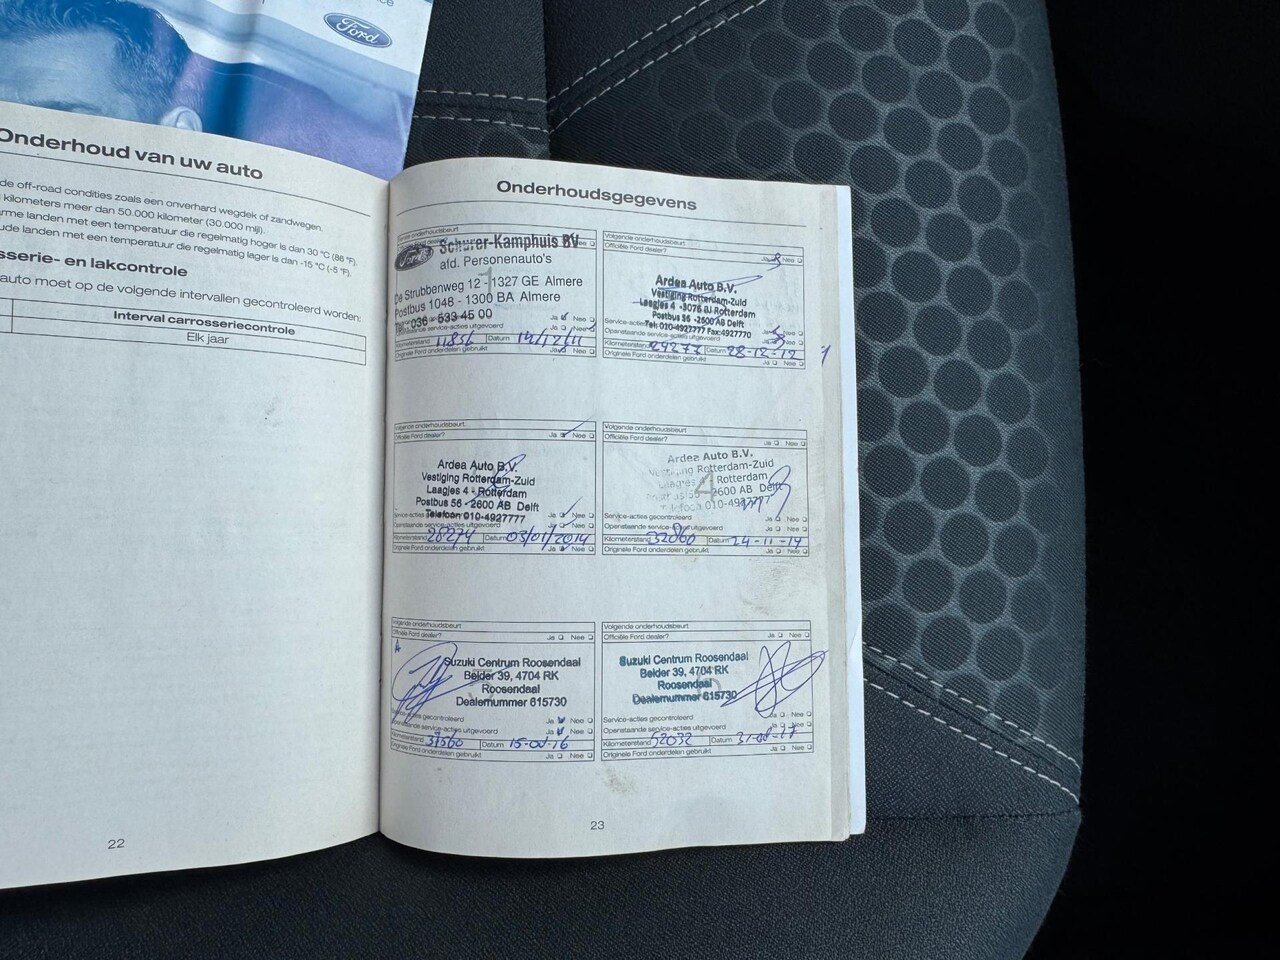 Ford
Onderhoud van uw auto
de off-road condities zoals een onverhard wegdek of zandwegen.
kilometers meer dan 50.000 kilometer (30.000 mijl).
arme landen met een temperatuur die regelmatig hoger is dan 30 °C (86 °F).
ude landen met een temperatuur die regelmatig lager is dan -15 °C (-5 °F).
sserie- en lakcontrole
auto moet op de volgende intervallen gecontroleerd worden:
Interval carrosseriecontrole
Elk jaar
22
Onderhoudsgegevens
Ford
Schurer-Kamphuis BV
afd. Personenauto's
De Strubbenweg 12 - 1327 GE Almere
Postbus 1048 - 1300 BA Almere
036 - 533 45 00
Ja Nee
service-acties uitgevoerd Ja Nee
Kilometerstand 11836 Datum 14/12/11
Originele Ford onderdelen gebruikt Ja Nee
Volgende onderhoudsbeurt
Officiële Ford dealer? Ja Nee
Ardea Auto B.V.
Vestiging Rotterdam-Zuid
Laagjes 4 - 3076 BJ Rotterdam
Postbus 56 - 2600 AB Delft
Tel: 010-4927777 Fax: 4927770
Openstaande service-acties uitgevoerd Ja Nee
Kilometerstand Datum 28-12-12
Originele Ford onderdelen gebruikt Ja Nee
Volgende onderhoudsbeurt
Officiële Ford dealer? Ja Nee
Ardea Auto B.V.
Vestiging Rotterdam-Zuid
Laagjes 4 - Rotterdam
Postbus 56 - 2600 AB Delft
Telefoon 010-4927777
Ja Nee
Openstaande service-acties uitgevoerd Ja Nee
Kilometerstand 28274 Datum 03/01/2014
Originele Ford onderdelen gebruikt Ja Nee
Volgende onderhoudsbeurt
Officiële Ford dealer? Ja Nee
Ardea Auto B.V.
Vestiging Rotterdam-Zuid
Laagjes 4 Rotterdam
2600 AB Delft
Telefoon 010-4927777
Service-acties gecontroleerd Ja Nee
Openstaande service-acties uitgevoerd Ja Nee
Kilometerstand 32060 Datum 24-11-14
Originele Ford onderdelen gebruikt Ja Nee
Volgende onderhoudsbeurt
Officiële Ford dealer? Ja Nee
Suzuki Centrum Roosendaal
Belder 39, 4704 RK
Roosendaal
Dealernummer 615730
Service-acties gecontroleerd Ja Nee
Openstaande service-acties uitgevoerd Ja Nee
Kilometerstand 37560 Datum
Originele Ford onderdelen gebruikt Ja Nee
Volgende onderhoudsbeurt
Officiële Ford dealer? Ja Nee
Suzuki Centrum Roosendaal
Belder 39, 4704 RK
Roosendaal
Dealernummer 615730
Service-acties gecontroleerd Ja Nee
Openstaande service-acties uitgevoerd Ja Nee
Kilometerstand 52032 Datum
Originele Ford onderdelen gebruikt Ja Nee
23